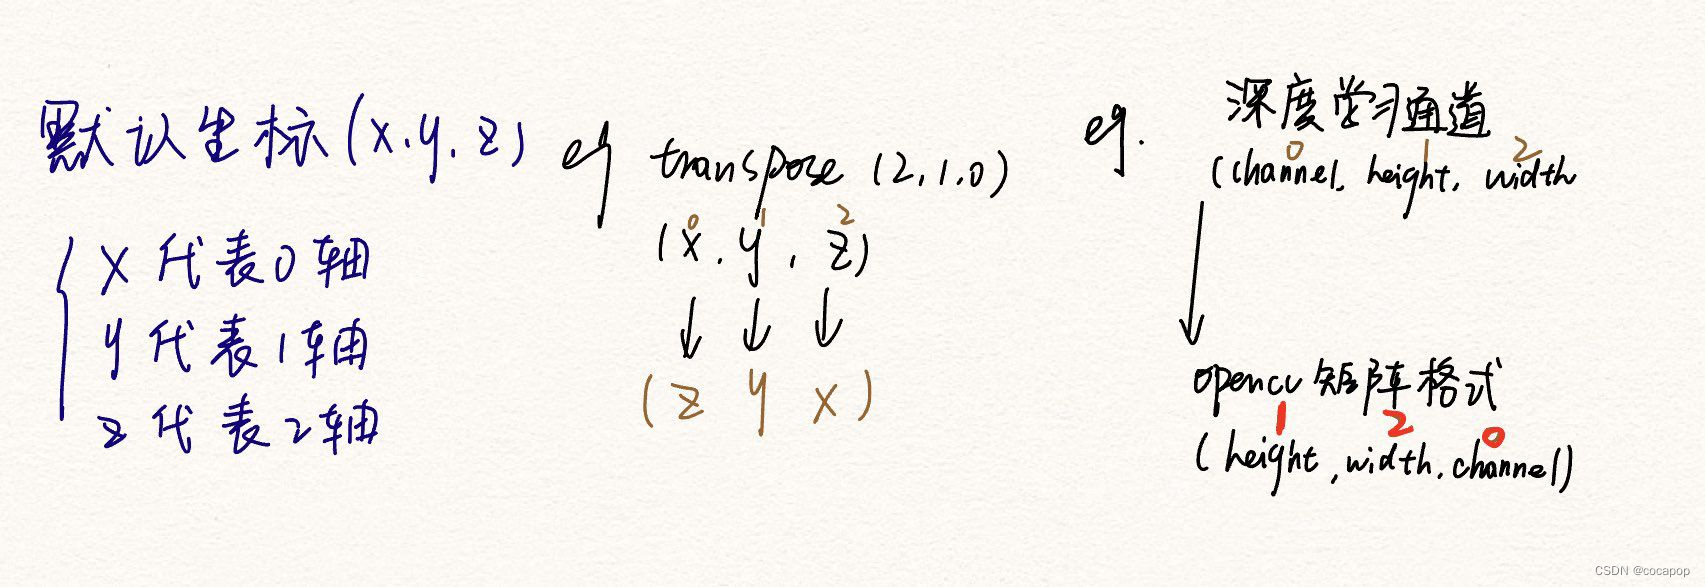 默认坐标(x.y.z)
x代表0轴
y代表1轴
z代表2轴
eg transpose (2.1.0)
0 1 2
(x.y.z)
(z y x)
eg.
深度学习通道
0 1 2
(channel. height. width
opencv矩阵格式
1 2 0
(height,width.channel)
CSDN @cocapop